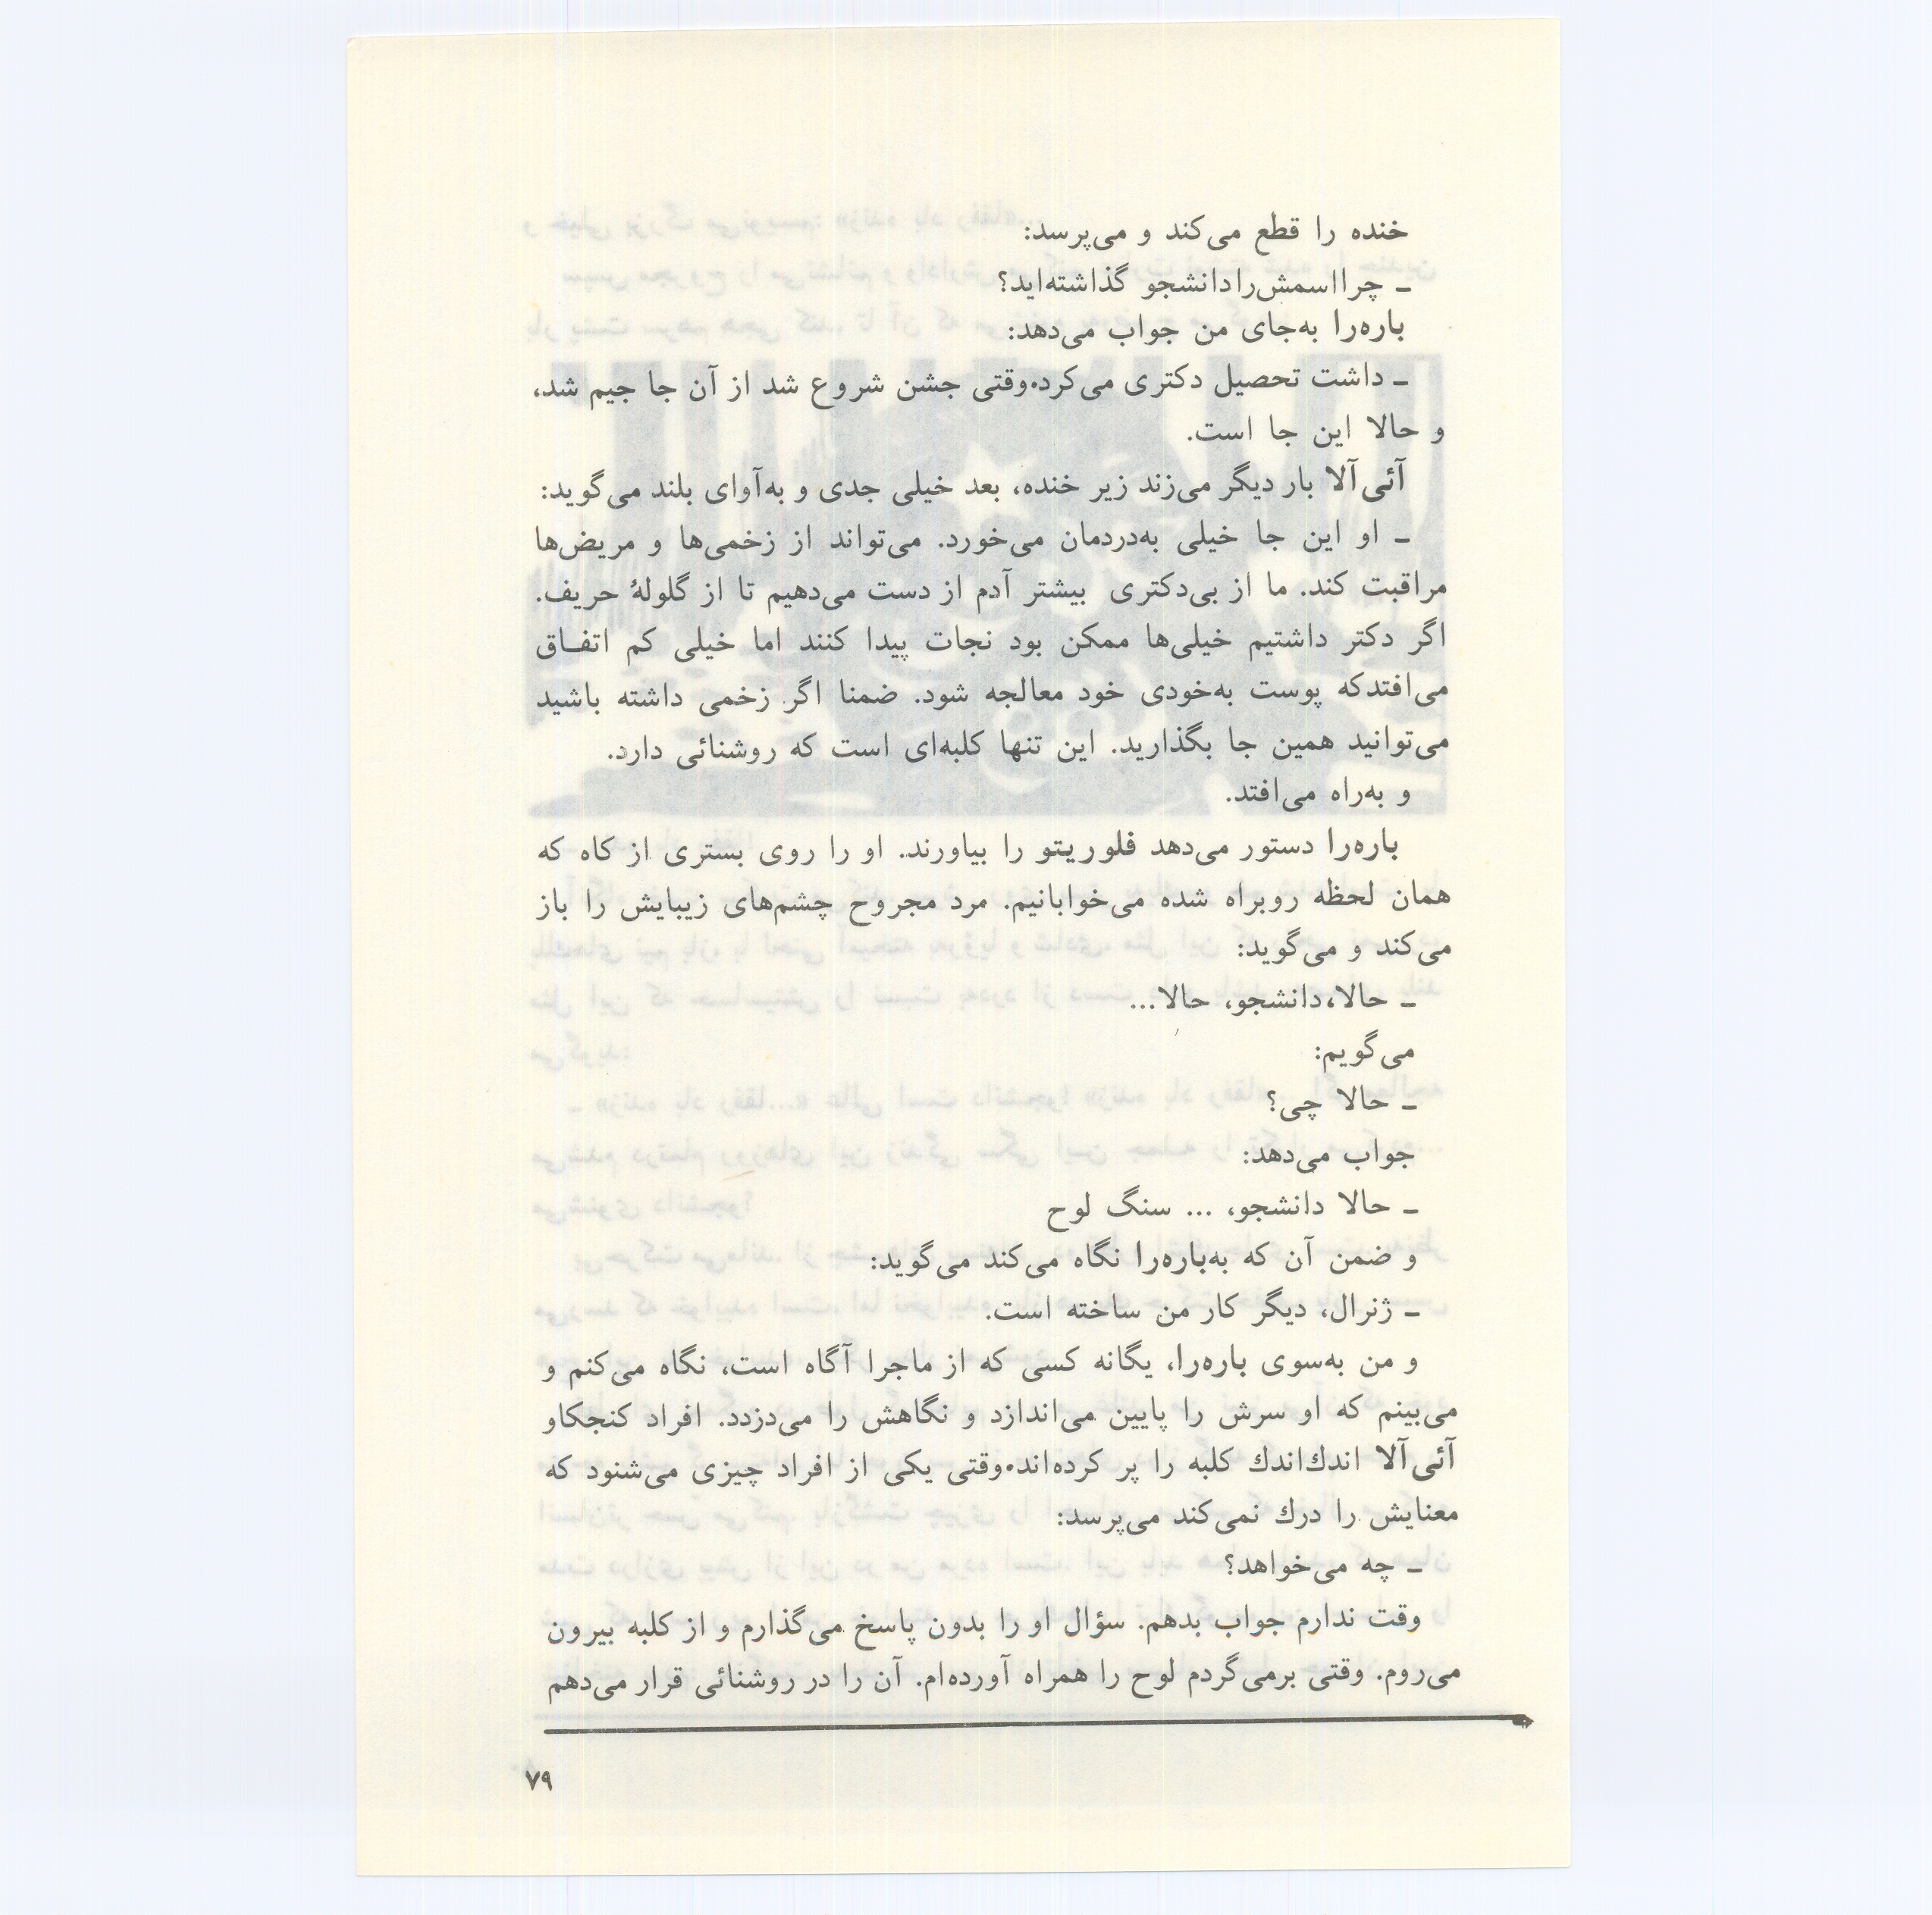 خنده را قطع می‌کند و می‌پرسد:
ـ چرااسمش‌رادانشجو گذاشته‌اید؟
باره‌را به‌جای من جواب می‌دهد:
ـ داشت تحصیل دکتری می‌کرد.وقتی جشن شروع شد از آن جا جیم شد،
و حالا این جا است.
آئی‌آلا بار دیگر می‌زند زیر خنده، بعد خیلی جدی و به‌آوای بلند می‌گوید:
ـ او این جا خیلی به‌دردمان می‌خورد. می‌تواند از زخمی‌ها و مریض‌ها
مراقبت کند. ما از بی‌دکتری بیشتر آدم از دست می‌دهیم تا از گلولهٔ حریف.
اگر دکتر داشتیم خیلی‌ها ممکن بود نجات پیدا کنند اما خیلی کم اتفـاق
می‌افتدکه پوست به‌خودی خود معالجه شود. ضمنا اگر زخمی داشته باشید
می‌توانید همین جا بگذارید. این تنها کلبه‌ای است که روشنائی دارد.
و به‌راه می‌افتد.
باره‌را دستور می‌دهد فلوریتو را بیاورند. او را روی بستری از کاه که
همان لحظه روبراه شده می‌خوابانیم. مرد مجروح چشم‌های زیبایش را باز
می‌کند و می‌گوید:
ـ حالا،دانشجو، حالا...
می‌گویم:
ـ حالا چی؟
جواب می‌دهد:
ـ حالا دانشجو، ... سنگ لوح
و ضمن آن که به‌باره‌را نگاه می‌کند می‌گوید:
ـ ژنرال، دیگر کار من ساخته است.
و من به‌سوی باره‌را، یگانه کسی که از ماجرا آگاه است، نگاه می‌کنم و
می‌بینم که او سرش را پایین می‌اندازد و نگاهش را می‌دزدد. افراد کنجکاو
آئی‌آلا اندك‌اندك کلبه را پر کرده‌اند.وقتی یکی از افراد چیزی می‌شنود که
معنایش را درك نمی‌کند می‌پرسد:
ـ چه می‌خواهد؟
وقت ندارم جواب بدهم. سؤال او را بدون پاسخ می‌گذارم و از کلبه بیرون
می‌روم. وقتی برمی‌گردم لوح را همراه آورده‌ام. آن را در روشنائی قرار می‌دهم
۷۹